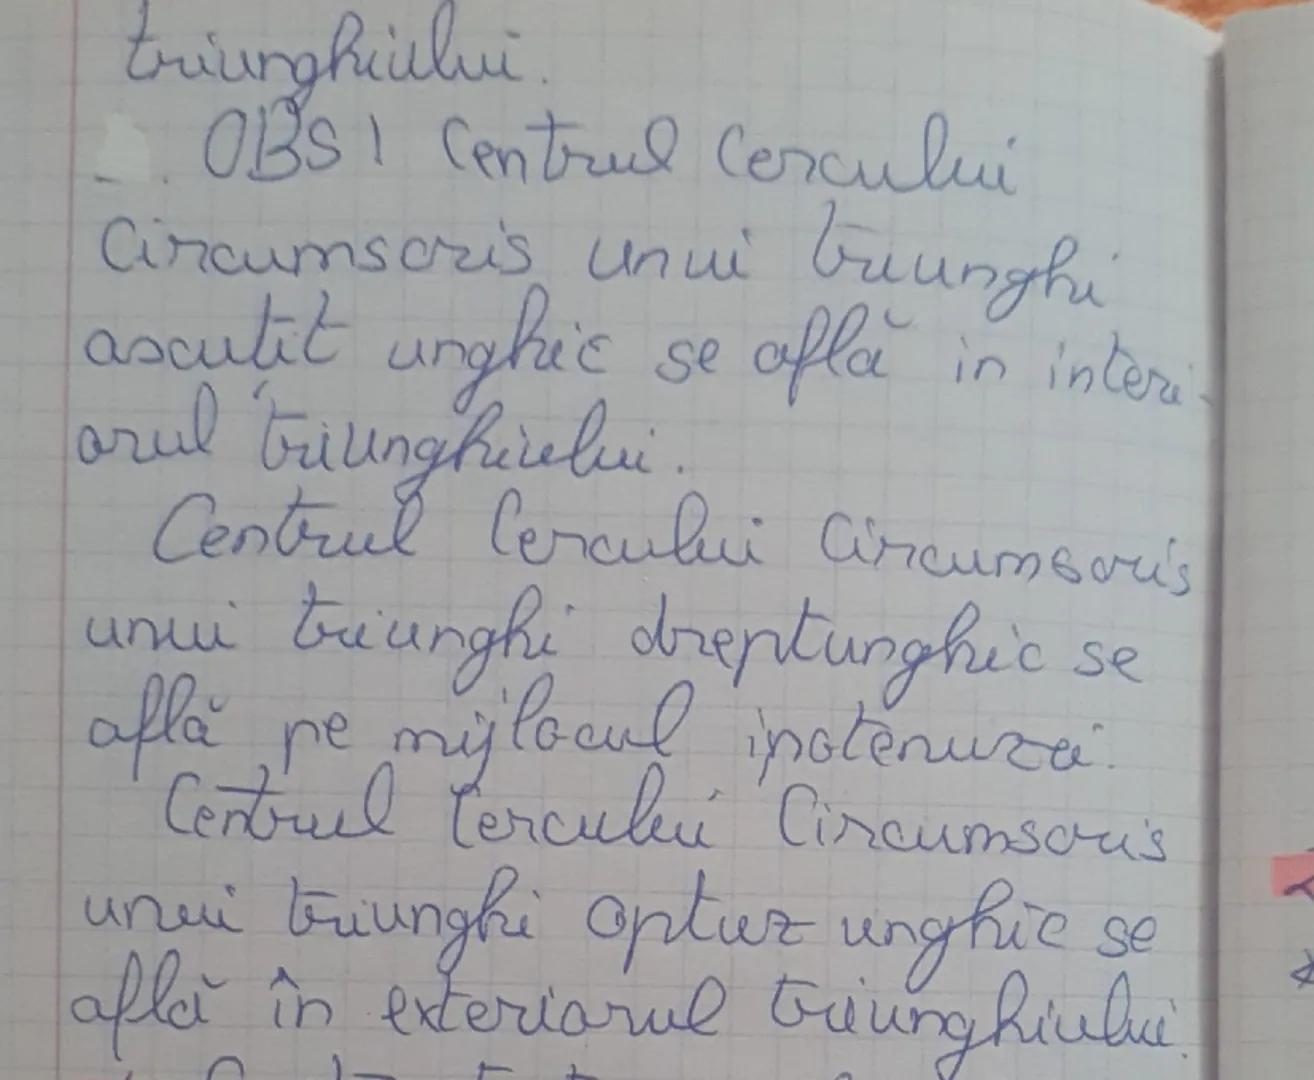 triunghiului.
OBS! Centrul Cercului
Circumscris unui triunghi
ascutit unghic se află in interi-
orul triunghiului.
Centrul Cercului Circumscris
unui triunghi dreptunghic se
află pe mijlocul ipotenuzei.
Centrul Cercului Circumscris
unui triunghi optuz unghic se
află în exteriorul triunghiului.